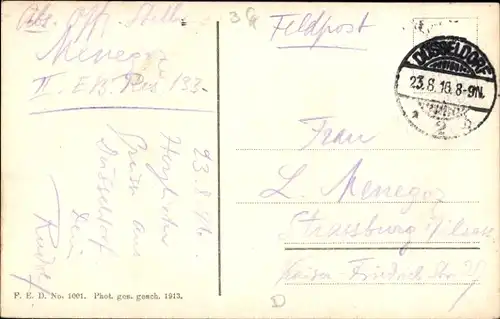 Abs. Off. Stellv.
Menegoz
II. E/B. Res 133.
Feldpost
DÜSSELDORF
23.8.16.8-9N.
2
23.8.16.
Herzliche
Grüsse aus
Düsseldorf
Dein
Rudolf
Frau
L. Menegoz
Strassburg i/Elsass
Kaiser-Friedrich-Str
F. E. D. No. 1001. Phot. ges. gesch. 1913.
D